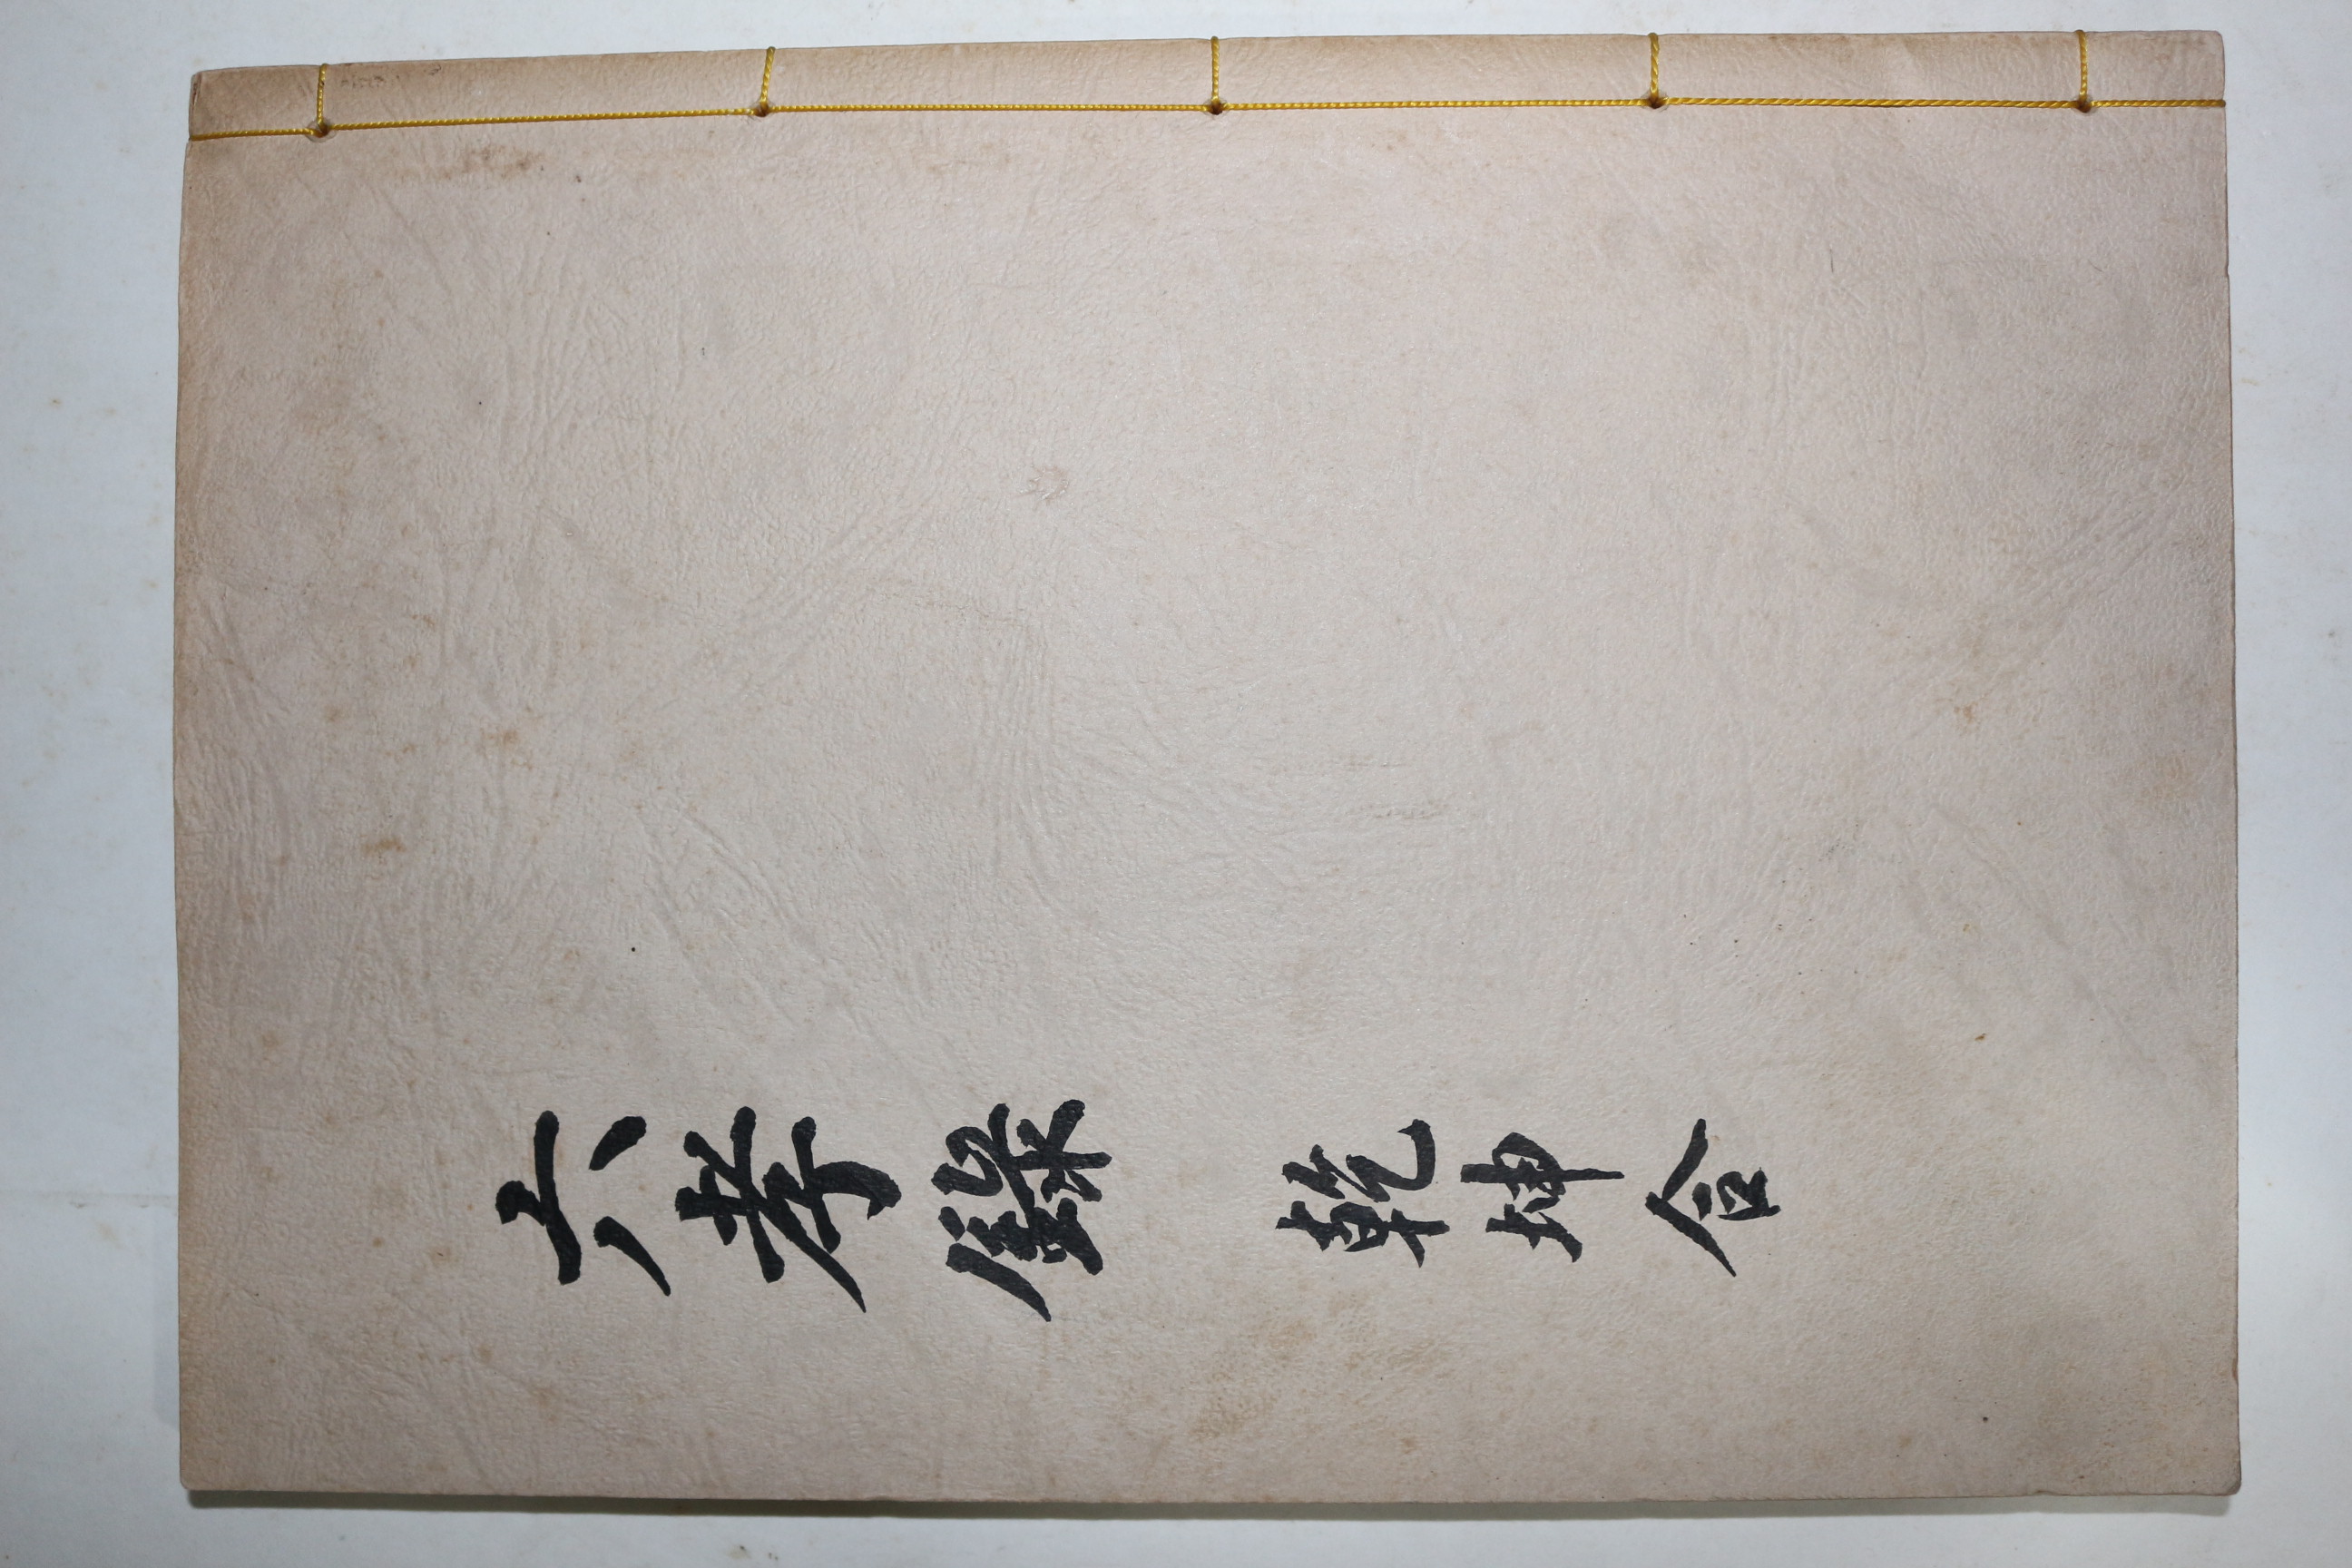 六孝錄 乾坤合